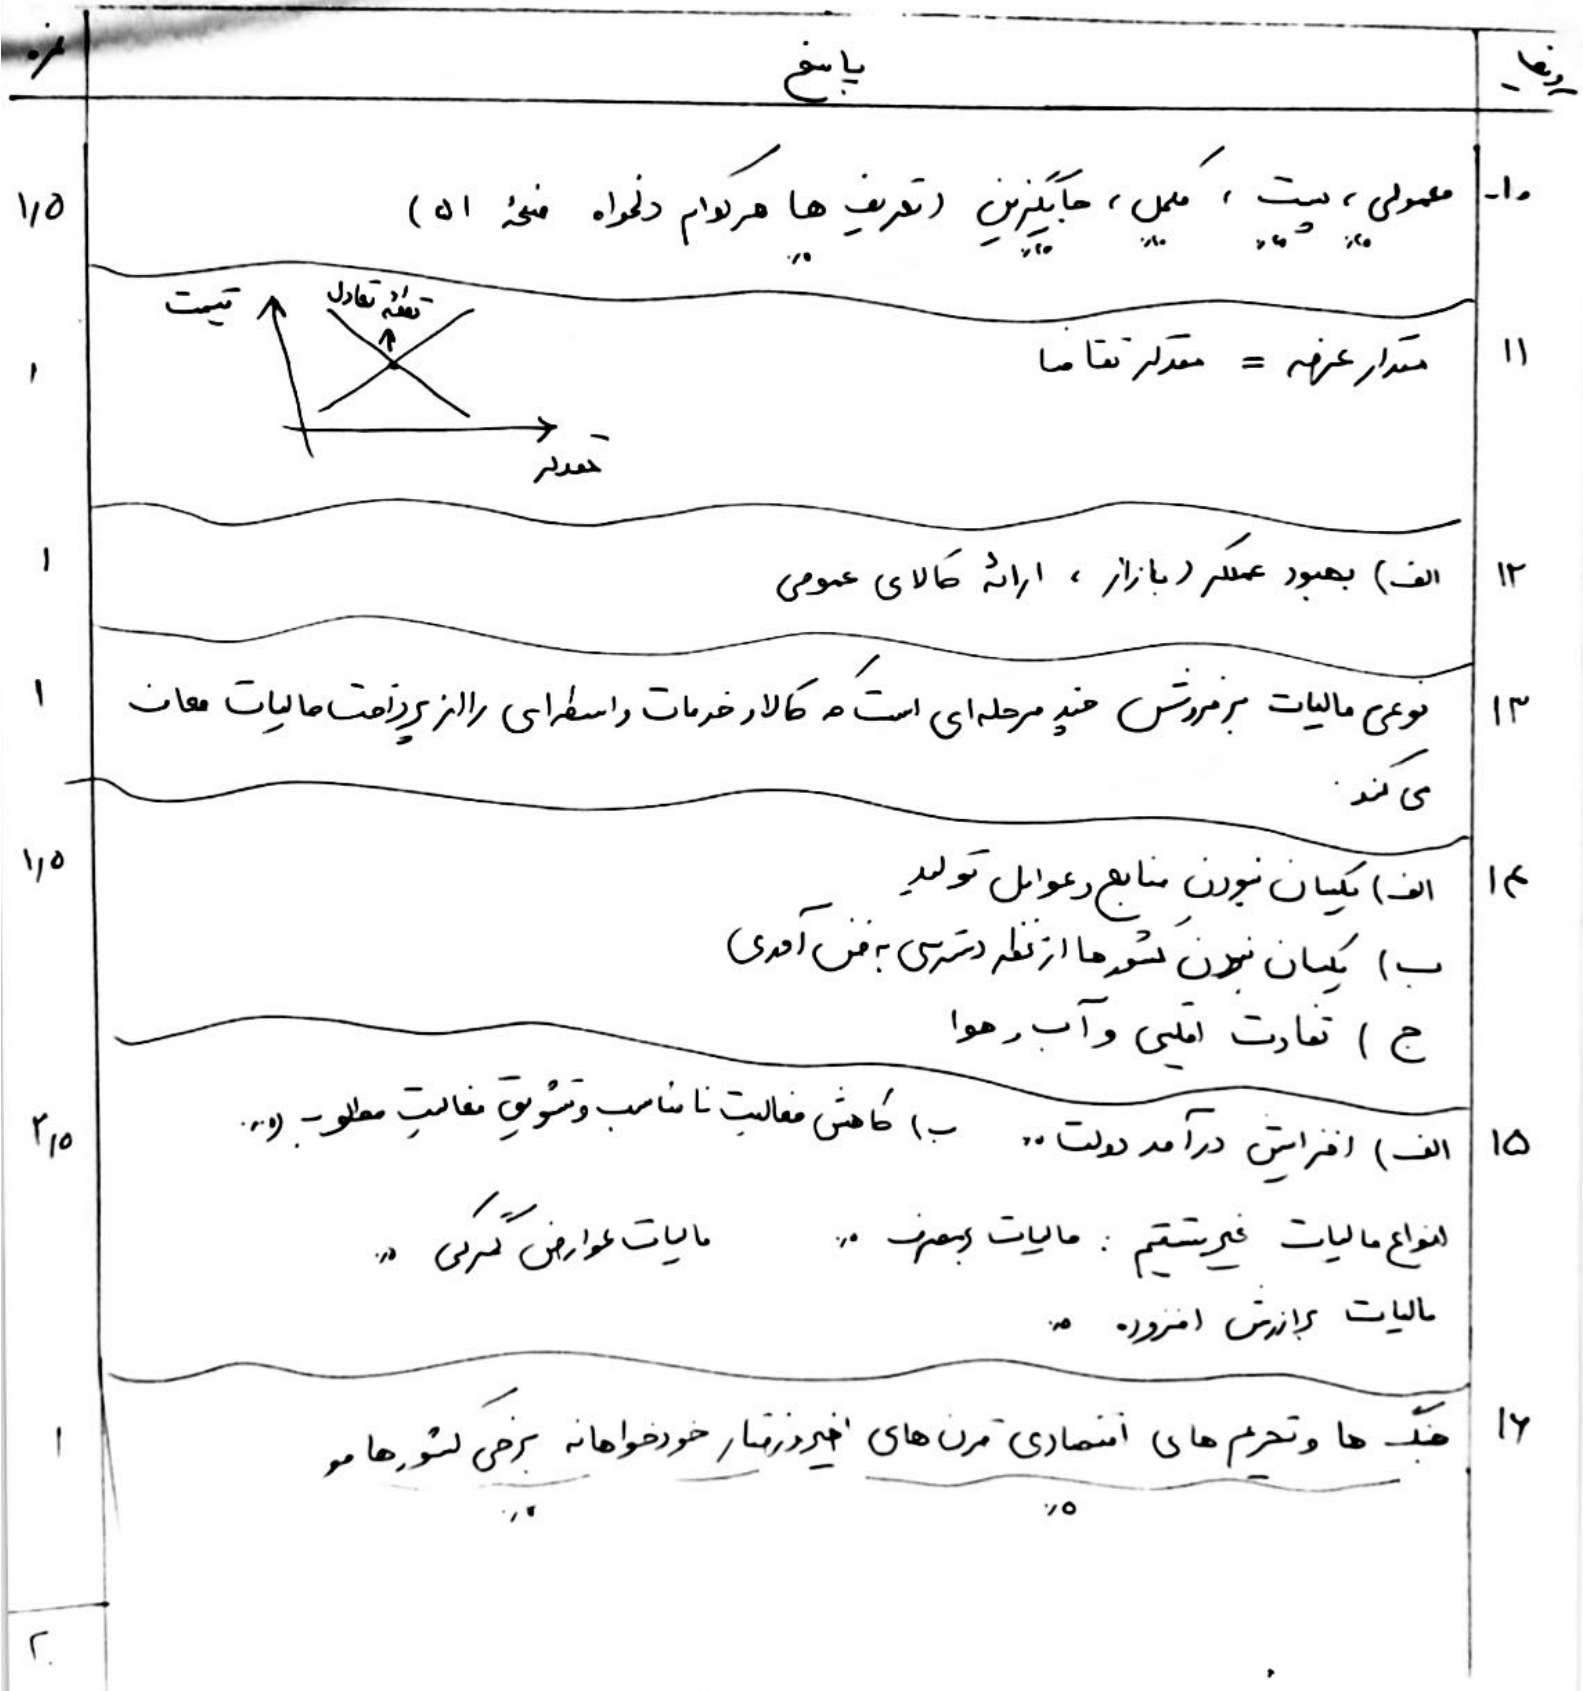 ردیف پاسخ نمره
۱۰- معمولی ، پست ، مکمل ، جایگزین (تعریف ها هرکدام دلخواه صفحهٔ ۵۱) ۱٫۵
قیمت نقطهٔ تعادل
۱۱ مقدار عرضه = مقدار تقاضا ۱
مقدار
۱۲ الف) بهبود عملکرد بازار ، ارائهٔ کالای عمومی ۱
۱۳ نوعی مالیات بر فروش چند مرحله‌ای است که کالا و خدمات واسطه‌ای را از پرداخت مالیات معاف ۱
می کند.
۱۴ الف) یکسان نبودن منابع و عوامل تولید ۱٫۵
ب) یکسان نبودن کشورها از نظر دسترسی به فن آوری
ج) تفاوت اقلیمی و آب و هوا
۱۵ الف) افزایش درآمد دولت ب) کاهش فعالیت نامناسب و تشویق فعالیت مطلوب ۲٫۵
انواع مالیات غیر مستقیم : مالیات بر مصرف مالیات عوارض گمرکی
مالیات بر ارزش افزوده
۱۶ جنگ ها و تحریم های اقتصادی قرن های اخیر و رفتار خودخواهانه برخی کشورها ۱
۰٫۵
۲۰